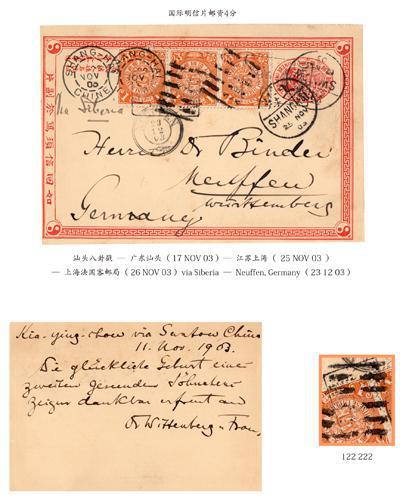 国际明信片邮资4分
SHANG-HAI
CHINE
Via Siberia
SHANGHAI
Herrn Dr Binder
Neuffen
Württemberg
Germany
汕头八封戳 — 广东汕头 (17 NOV 03) — 江苏上海 ( 25 NOV 03 )
— 上海法国客邮局 ( 26 NOV 03 ) via Siberia — Neuffen, Germany ( 23 12 03 )
Kia-ying-chow via Swatow China
11. Nov. 1903.
Die glückliche Geburt eines
zweiten gesunden Söhnchens
zeigen dankbar erfreut an
Dr Wittenberg u Frau.
122 222